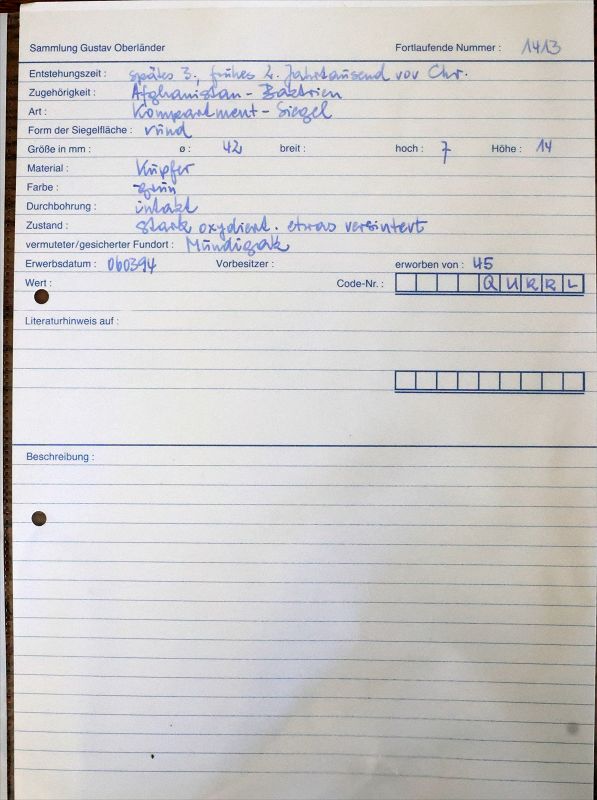 Sammlung Gustav Oberländer Fortlaufende Nummer : 1413
Entstehungszeit : spätes 3., frühes 2. Jahrtausend vor Chr.
Zugehörigkeit : Afghanistan - Baktrien
Art : Kompartment - Siegel
Form der Siegelfläche : rund
Größe in mm : ø : 42 breit : hoch : 7 Höhe : 14
Material : Kupfer
Farbe : grün
Durchbohrung : intakt
Zustand : stark oxydiert. etwas versintert
vermuteter/gesicherter Fundort : Mundigak
Erwerbsdatum : 060394 Vorbesitzer : erworben von : 45
Wert : Code-Nr. : QURRL
Literaturhinweis auf :
Beschreibung :